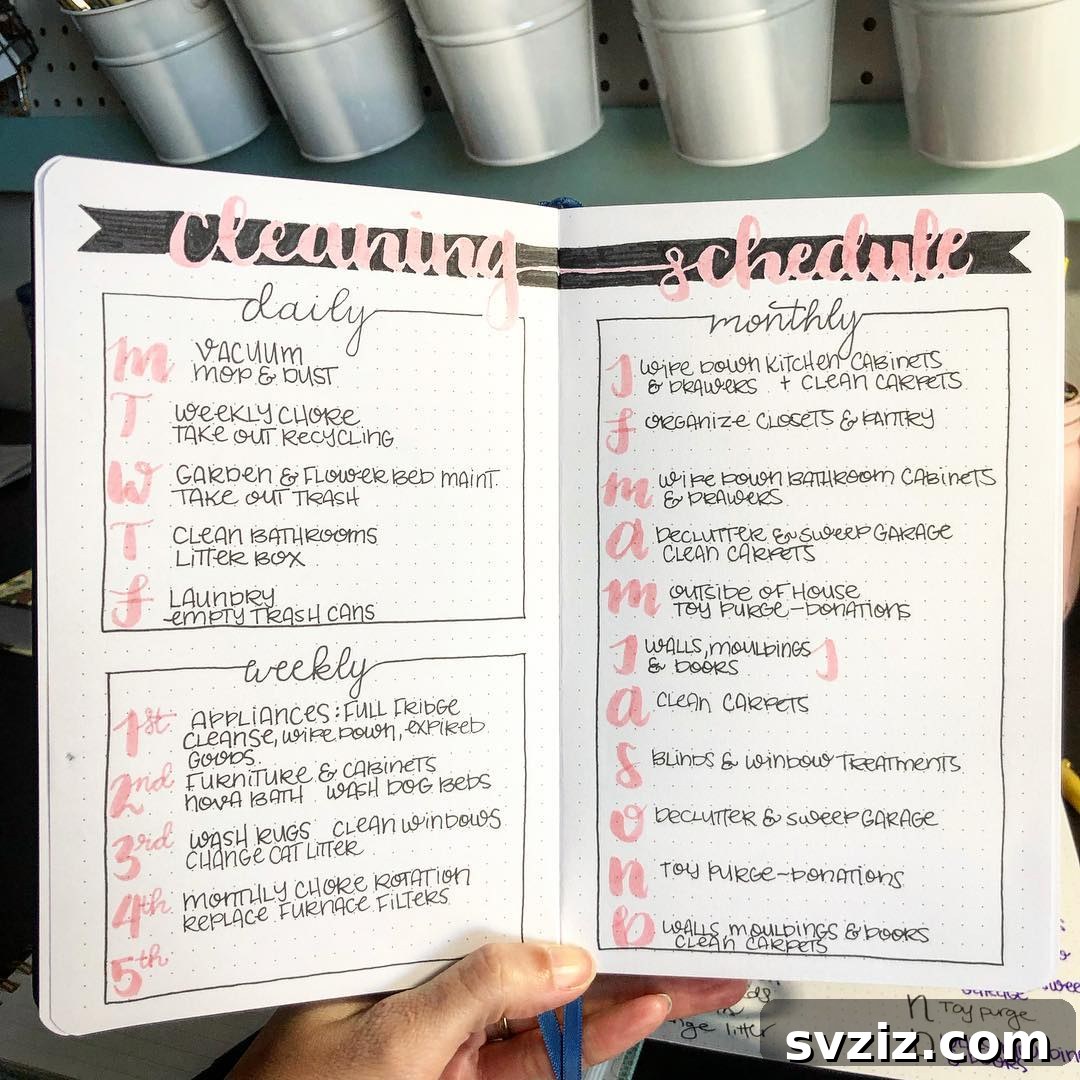 cleaning schedule
daily
M VACUUM
MOP & DUST
T WEEKLY CHORE
TAKE OUT RECYCLING
W GARDEN & FLOWER BED MAINT.
TAKE OUT TRASH
T CLEAN BATHROOMS
LITTER BOX
f LAUNDRY
EMPTY TRASH CANS
weekly
1st APPLIANCES: FULL FRIDGE
CLEANSE, WIPE DOWN, EXPIRED
GOODS.
2nd FURNITURE & CABINETS
NOVA BATH WASH DOG BEDS
3rd WASH RUGS CLEAN WINDOWS
CHANGE CAT LITTER
4th MONTHLY CHORE ROTATION
REPLACE FURNACE FILTERS
5th
monthly
J WIPE DOWN KITCHEN CABINETS
& DRAWERS + CLEAN CARPETS
f ORGANIZE CLOSETS & PANTRY
m WIPE DOWN BATHROOM CABINETS
& DRAWERS
a DECLUTTER & SWEEP GARAGE
CLEAN CARPETS
m OUTSIDE OF HOUSE
TOY PURGE-DONATIONS
J WALLS, MOULDINGS J
& DOORS
a CLEAN CARPETS
S BLINDS & WINDOW TREATMENTS
O DECLUTTER & SWEEP GARAGE
n TOY PURGE-DONATIONS
D WALLS, MOULDINGS & DOORS
CLEAN CARPETS
n Toy purge
litter
svziz.com